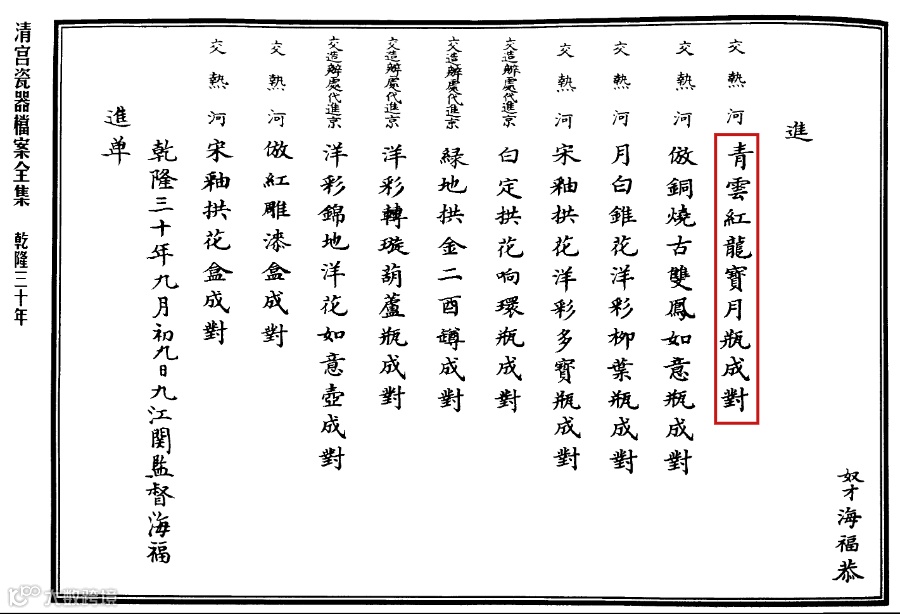 奴才海福恭
進
交熱河 青雲紅龍寶月瓶成對
交熱河 倣銅燒古雙鳳如意瓶成對
交熱河 月白錐花洋彩柳葉瓶成對
交熱河 宋釉拱花洋彩多寶瓶成對
交造辦處代進京 白定拱花响環瓶成對
交造辦處代進京 緑地拱金二酉罇成對
交造辦處代進京 洋彩轉璇葫蘆瓶成對
交造辦處代進京 洋彩錦地洋花如意壺成對
交熱河 倣紅雕漆盒成對
交熱河 宋釉拱花盒成對
乾隆三十年九月初九日九江関監督海福
進单
清宫瓷器檔案全集 乾隆三十年
大數跨境